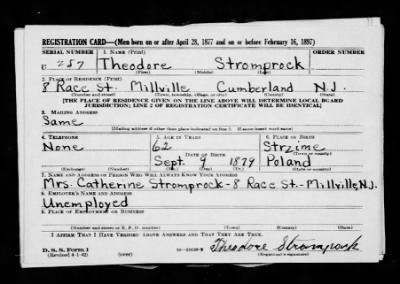 REGISTRATION CARD—(Men born on or after April 28, 1877 and on or before February 16, 1897)
SERIAL NUMBER 1. NAME (Print) ORDER NUMBER
U 287 Theodore Stromprock
(First) (Middle) (Last)
2. PLACE OF RESIDENCE (Print)
8 Race St. Millville Cumberland N.J.
(Number and street) (Town, township, village, or city) (County) (State)
[THE PLACE OF RESIDENCE GIVEN ON THE LINE ABOVE WILL DETERMINE LOCAL BOARD
JURISDICTION; LINE 2 OF REGISTRATION CERTIFICATE WILL BE IDENTICAL]
3. MAILING ADDRESS
Same
(Mailing address if other than place indicated on line 2. If same insert word same)
4. TELEPHONE 5. AGE IN YEARS 6. PLACE OF BIRTH
None 62 Strzime
DATE OF BIRTH (Town or county)
Sept. 9 1879 Poland
(Mo.) (Day) (Yr.) (State or country)
7. NAME AND ADDRESS OF PERSON WHO WILL ALWAYS KNOW YOUR ADDRESS
Mrs. Catherine Stromprock-8 Race St.-Millville, N.J.
8. EMPLOYER'S NAME AND ADDRESS
Unemployed
9. PLACE OF EMPLOYMENT OR BUSINESS
(Number and street or R. F. D. number) (Town) (County) (State)
I AFFIRM THAT I HAVE VERIFIED ABOVE ANSWERS AND THAT THEY ARE TRUE.
D. S. S. Form 1
(Revised 4-1-42) (over) Theodore Stromprock
(Registrant's signature)